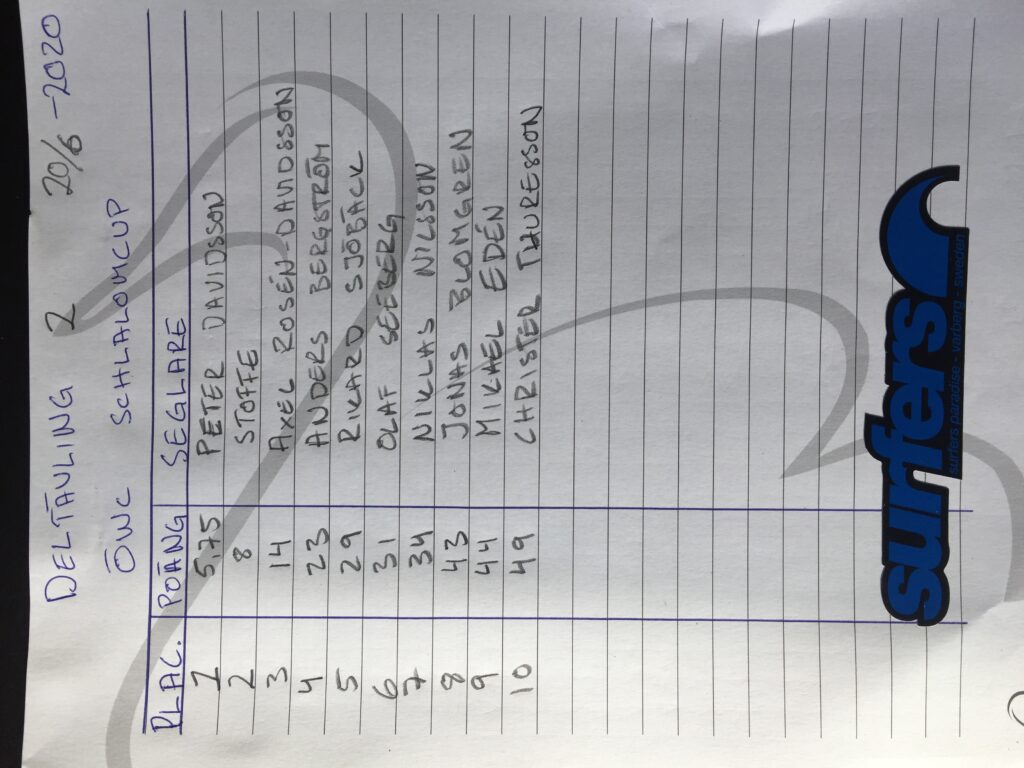 DELTÄVLING 2 20/6-2020
ÖWC SCHLALOMCUP
PLAC. POÄNG SEGLARE
1 5,75 PETER DAVIDSSON
2 8 STOFFE
3 14 AXEL ROSÉN-DAVIDSSON
4 23 ANDERS BERGSTRÖM
5 29 RIKARD SJÖBÄCK
6 31 OLAF SEEBERG
7 34 NIKLAS NILSSON
8 43 JONAS BLOMGREN
9 44 MIKAEL EDÉN
10 49 CHRISTER THURESSON
surfers
surfers paradise - varberg - sweden